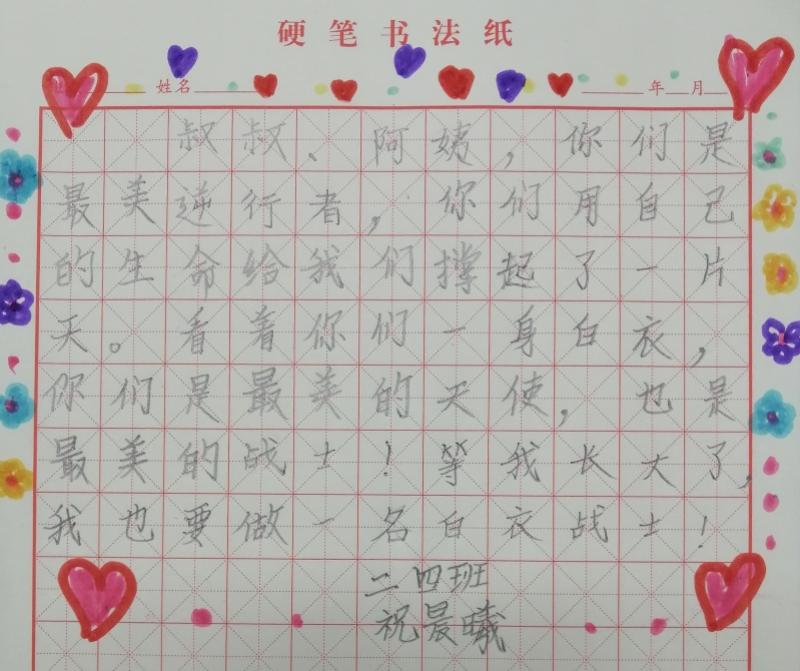 硬笔书法纸
姓名 年 月
叔叔、阿姨，你们是
最美逆行者，你们用自己
的生命给我们撑起了一片
天。看着你们一身白衣，
你们是最美的天使，也是
最美的战士！等我长大了，
我也要做一名白衣战士！
二四班
祝晨曦